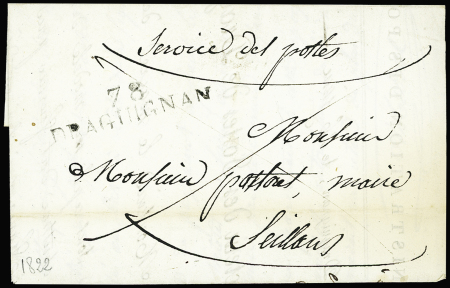 Service des postes
78
DRAGUIGNAN
Monsieur
Monsieur postout, maire
Seillans
1822